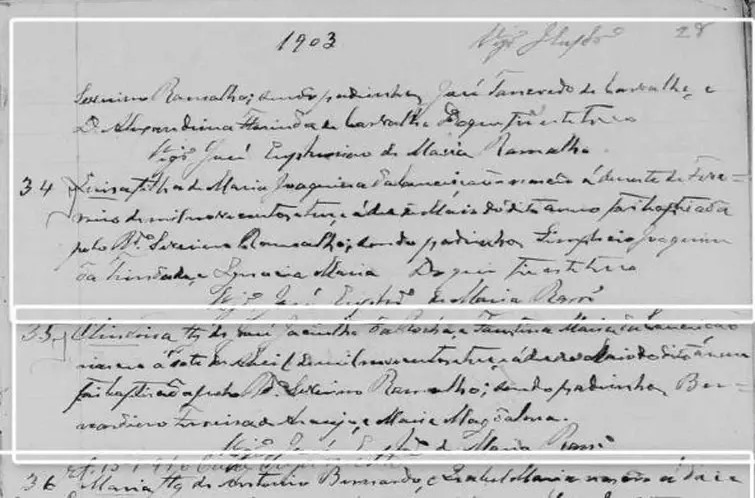 1903
28
Severino Ramalho; sendo padrinhos José Tancredo de Carvalho, e
D. Alexandrina Florinda de Carvalho Do que fiz este termo
Vigº José Euphrosino de Maria Ramalho
34 Luisa filha de Maria Joaquina da Conceição nasceu á de
de mil novecentos e tres, e á de Maio do dito anno foi baptisada
pelo Pe. Severino Ramalho; sendo padrinhos Simplicio Joaquim
da Trindade, e Ignacia Maria Do que fiz este termo
Vigº José de Maria Ramº
35 fª de José Jacintho da Rocha, e Faustina Maria da Conceição
nasceu á sete de Abril de mil novecentos e tres, e á de Maio do dito anno
foi baptisada pelo Pe. Severino Ramalho; sendo padrinhos Ber-
nardino Ferreira de Araujo, e Maria Magdalena.
Vigº José de Maria Ramº
36 Maria fª de Antonio Bernardo, e Isabel Maria nasceu á